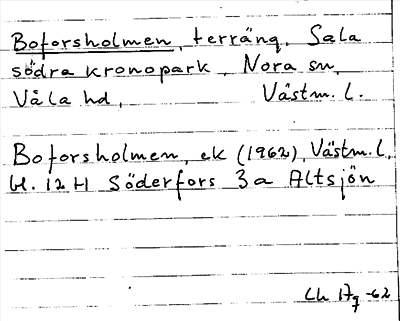 Boforsholmen, terräng, Sala
södra kronopark, Nora sn,
Våla hd, Västm. l.
Boforsholmen, ek (1962), Västm. l.
bl. 12 H Söderfors 3a Altsjön
-62